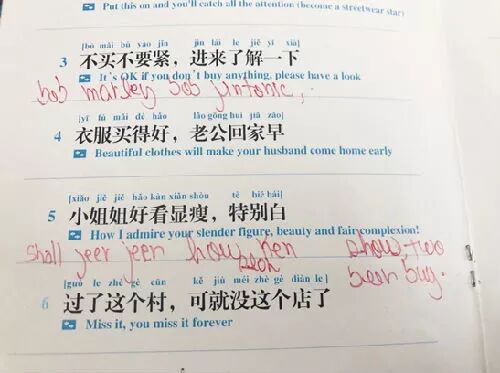 Put this on and you'll catch all the attention (become a streetwear star)
[bō mǎi bù yào jǐn jìn lái le jiě yī xià]
3 不买不要紧，进来了解一下
It's OK if you don't buy anything, please have a look
bob marley bob jintonic,.
[yī fú mǎi dé hǎo lǎo gōng huí jiā zǎo]
4 衣服买得好，老公回家早
Beautiful clothes will make your husband come home early
[xiǎo jiě jiě hǎo kàn xiǎn shòu tè bié bái]
5 小姐姐好看显瘦，特别白
How I admire your slender figure, beauty and fair complexion!
Shall jeer jeer how ken show, two
bean buy.
[guò le zhè gè cūn kě jiù méi zhè gè diàn le]
6 过了这个村，可就没这个店了
Miss it, you miss it forever